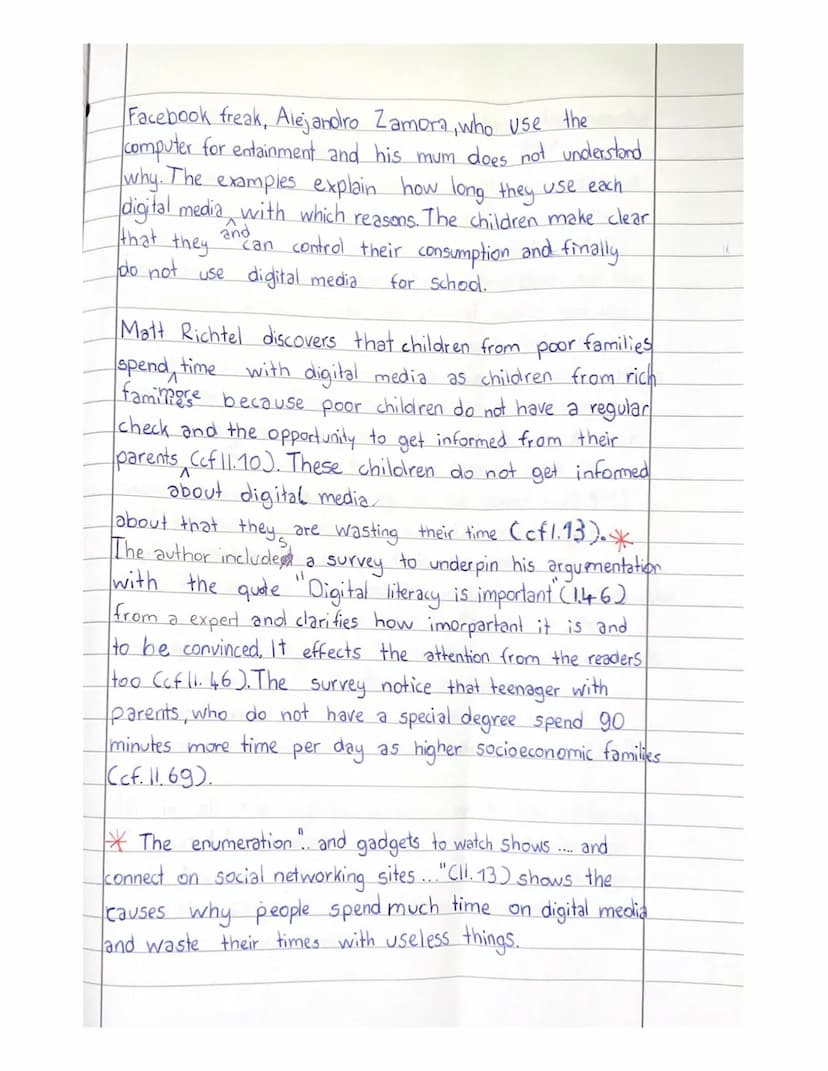 Facebook freak, Alejandro Zamora, who use the
computer for entainment and his mum does not understand
why. The examples explain how long they use each
digital media and with which reasons. The children make clear
that they can control their consumption and finally
do not use digital media for school.
Matt Richtel discovers that children from poor families
spend more time with digital media as children from rich
families because poor children do not have a regular
check and the opportunity to get informed from their
parents about digital media (cf ll. 10). These children do not get informed
about that they are wasting their time (cf l. 13). *
The author includes a survey to underpin his argumentation
with the quote "Digital literacy is important" (l. 46)
from a expert and clarifies how imorpartant it is and
to be convinced. It effects the attention from the readers
too (cf ll. 46). The survey notice that teenager with
parents, who do not have a special degree spend 90
minutes more time per day as higher socioeconomic families
(cf. ll. 69).
* The enumeration ".. and gadgets to watch shows .... and
connect on social networking sites ..." (ll. 13) shows the
causes why people spend much time on digital media
and waste their times with useless things.